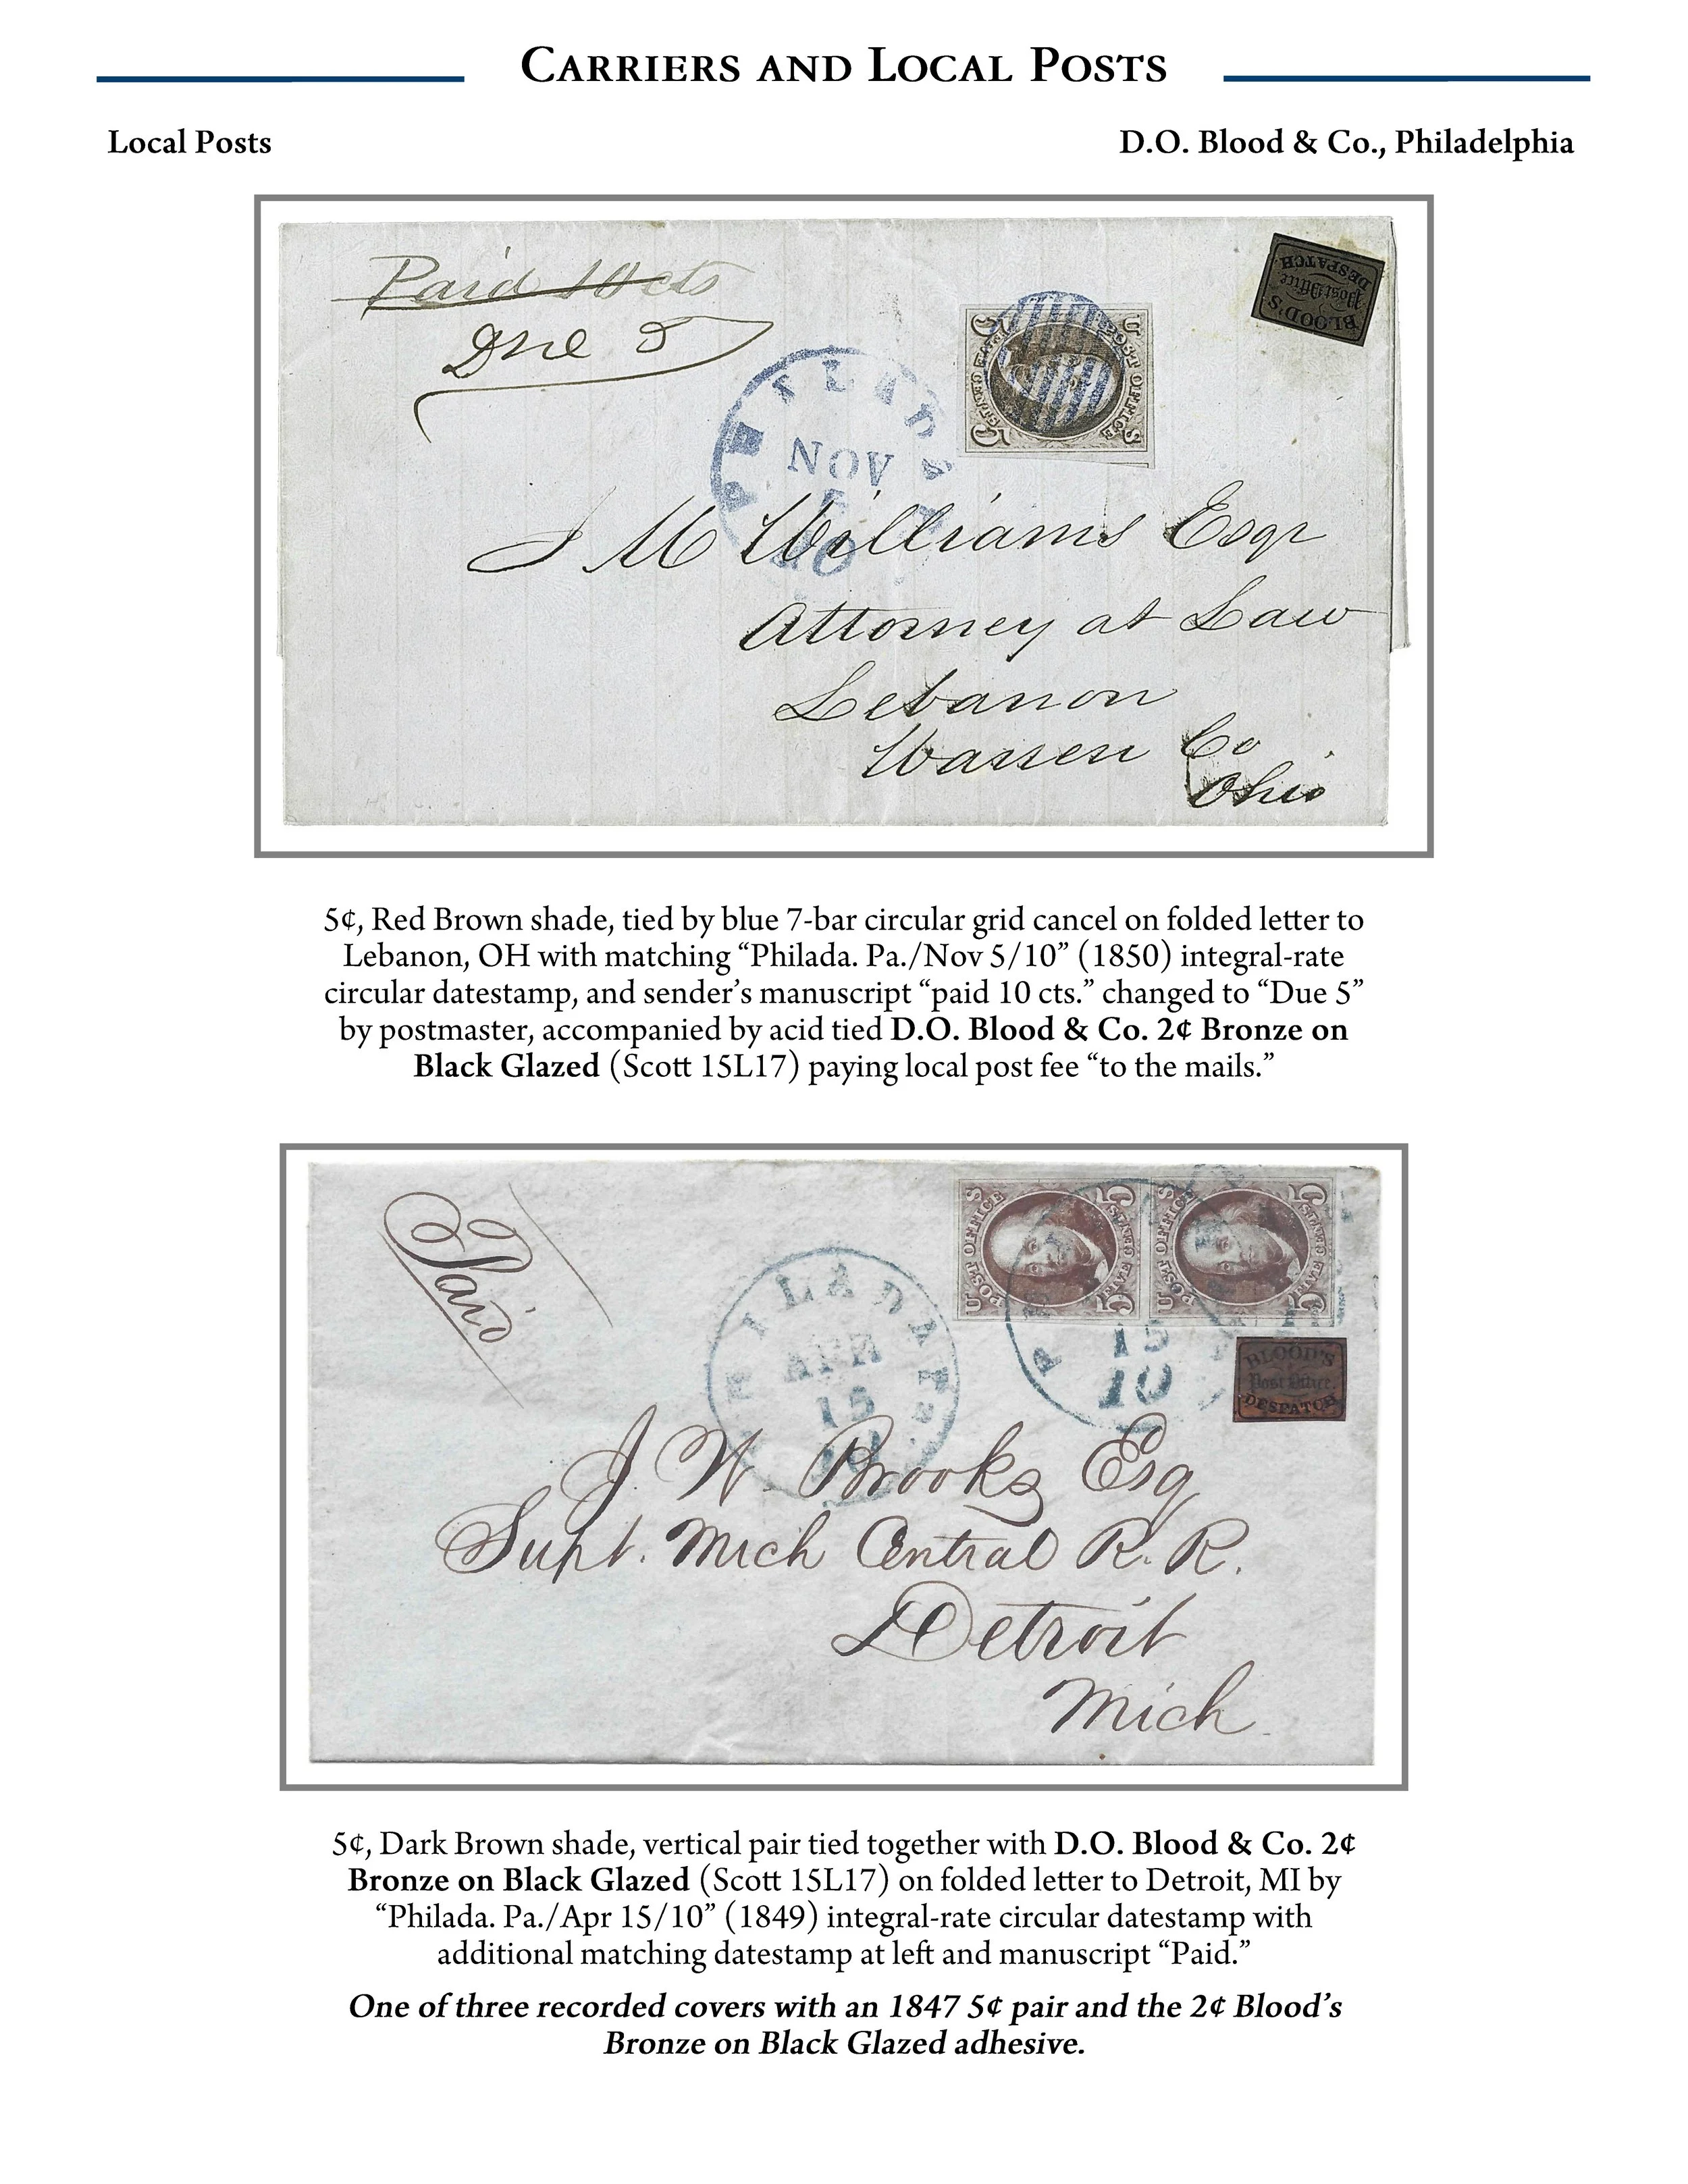 Carriers and Local Posts
Local Posts
D.O. Blood & Co., Philadelphia
Paid 10 cts
Due 5
BLOOD'S
Post Office
DESPATCH
U S
POST OFFICE
PHILADA
NOV
5
10
J M Williams Esqr
Attorney at Law
Lebanon
Warren Co
Ohio
5¢, Red Brown shade, tied by blue 7-bar circular grid cancel on folded letter to
Lebanon, OH with matching “Philada. Pa./Nov 5/10” (1850) integral-rate
circular datestamp, and sender’s manuscript “paid 10 cts.” changed to “Due 5”
by postmaster, accompanied by acid tied D.O. Blood & Co. 2¢ Bronze on
Black Glazed (Scott 15L17) paying local post fee “to the mails.”
Paid
U S
POST OFFICE
FIVE
5 5
U S
POST OFFICE
FIVE
5 5
15
10
BLOOD'S
Post Office.
DESPATCH
PHILADA Pa.
APR
15
10
J. W. Brooks Esq
Supt. Mich Central R. R.
Detroit
Mich
5¢, Dark Brown shade, vertical pair tied together with D.O. Blood & Co. 2¢
Bronze on Black Glazed (Scott 15L17) on folded letter to Detroit, MI by
“Philada. Pa./Apr 15/10” (1849) integral-rate circular datestamp with
additional matching datestamp at left and manuscript “Paid.”
One of three recorded covers with an 1847 5¢ pair and the 2¢ Blood’s
Bronze on Black Glazed adhesive.